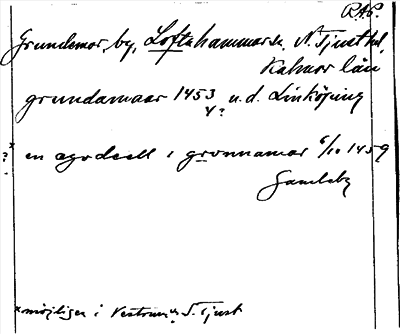 RAP.
Grundemar, by, Loftahammar sn. N. Tjust hd,
Kalmar län
grundamaar 1453 u.d. Linköping
4?
x en ægodeell i gronnamar 6/10 1459
?
Gamleby
x möjligen i Vestrum sn S. Tjust